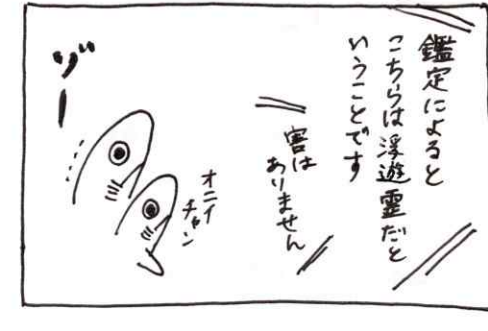 鑑定によると
こちらは浮遊霊だと
いうことです
害は
ありません
オニイ
チャン
ジー